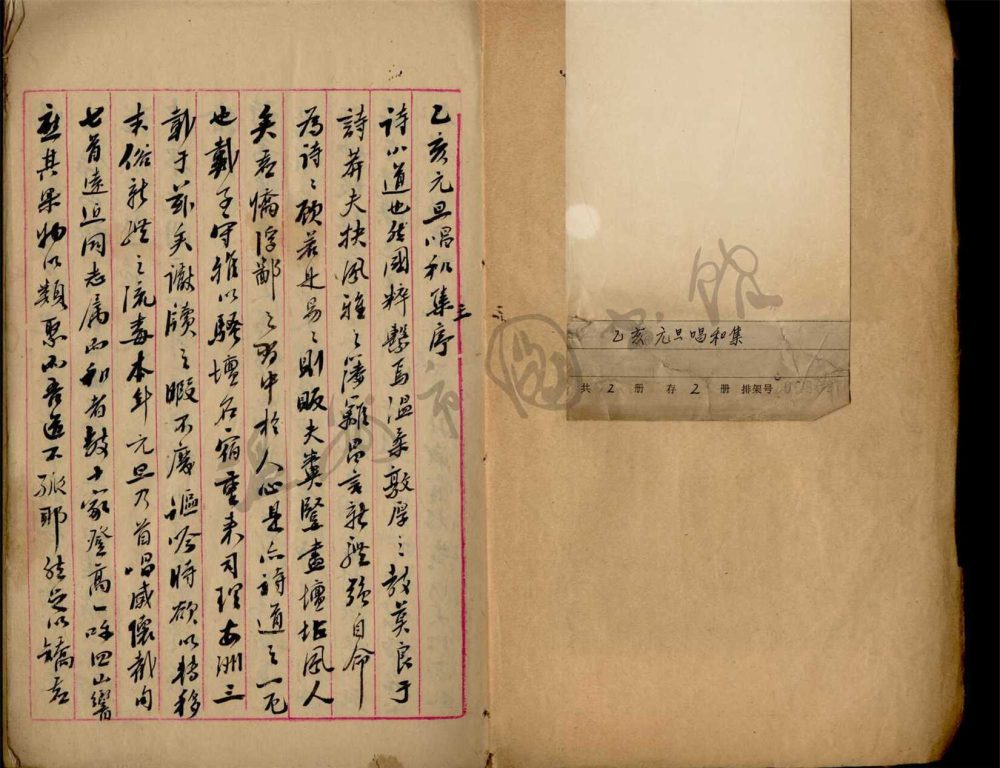 乙亥元旦唱和集
共 2 册 存 2 册 排架号
乙亥元旦唱和集序
三
诗小道也然國粹繫焉溫柔敦厚之教莫良于
詩莽夫抉風雅之藩籬昌言新體強自命
為詩之顧若是易之則販夫糞豎盡壇坫風人
矣意憍浮鄙之習中於人心是亦詩道之一厄
也戴玉守雅以騷壇名宿重来司理安洲三
載于茲矣讞牘之暇不廢謳吟時欲以轉移
末俗新體之流毒本年元旦乃首唱感懷截句
七首遠近同志属而和者數十家登高一呼四山響
應其果物以類聚而吾道不孤耶然定以矯